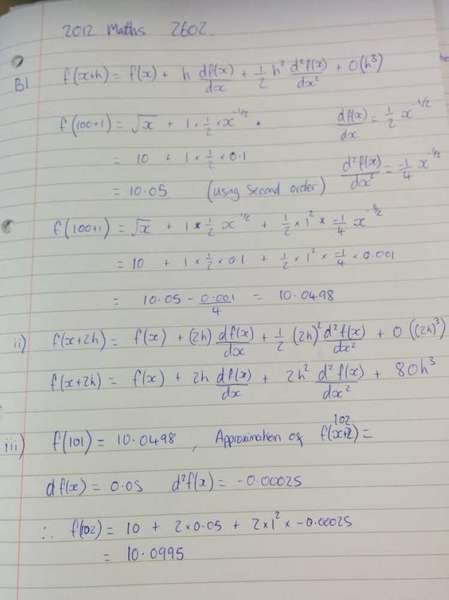 2012 Maths 2602
B1 f(x+h) = f(x) + h df(x)/dx + 1/2 h² d²f(x)/dx² + O(h³)
f(100+1) = √x + 1 × 1/2 × x^-1/2 . df(x)/dx = 1/2 x^-1/2
= 10 + 1 × 1/2 × 0.1
d²f(x)/dx² = -1/4 x^-3/2
= 10.05 (using second order)
f(100+1) = √x + 1 × 1/2 x^-1/2 + 1/2 × 1² × -1/4 x^-3/2
= 10 + 1 × 1/2 × 0.1 + 1/2 × 1² × -1/4 × 0.001
= 10.05 - 0.001/4 = 10.0498
ii) f(x+2h) = f(x) + (2h) df(x)/dx + 1/2 (2h)² d²f(x)/dx² + O((2h)³)
f(x+2h) = f(x) + 2h df(x)/dx + 2h² d²f(x)/dx² + 8Oh³
iii) f(101) = 10.0498 , Approximation of f(x+2) =
102
df(x) = 0.05 d²f(x) = -0.00025
∴ f(102) = 10 + 2×0.05 + 2×1² × -0.00025
= 10.0995